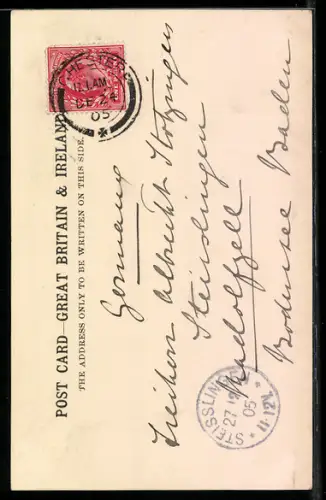 POST CARD—GREAT BRITAIN & IRELAND
THE ADDRESS ONLY TO BE WRITTEN ON THIS SIDE.
CHESTER
11.AM
DE 24
05
Germany
Freiherr Albrecht Stotzingen
Steisslingen
Radolfzell
Bodensee Baden
STEISSLINGEN
27 12
05
11-12V